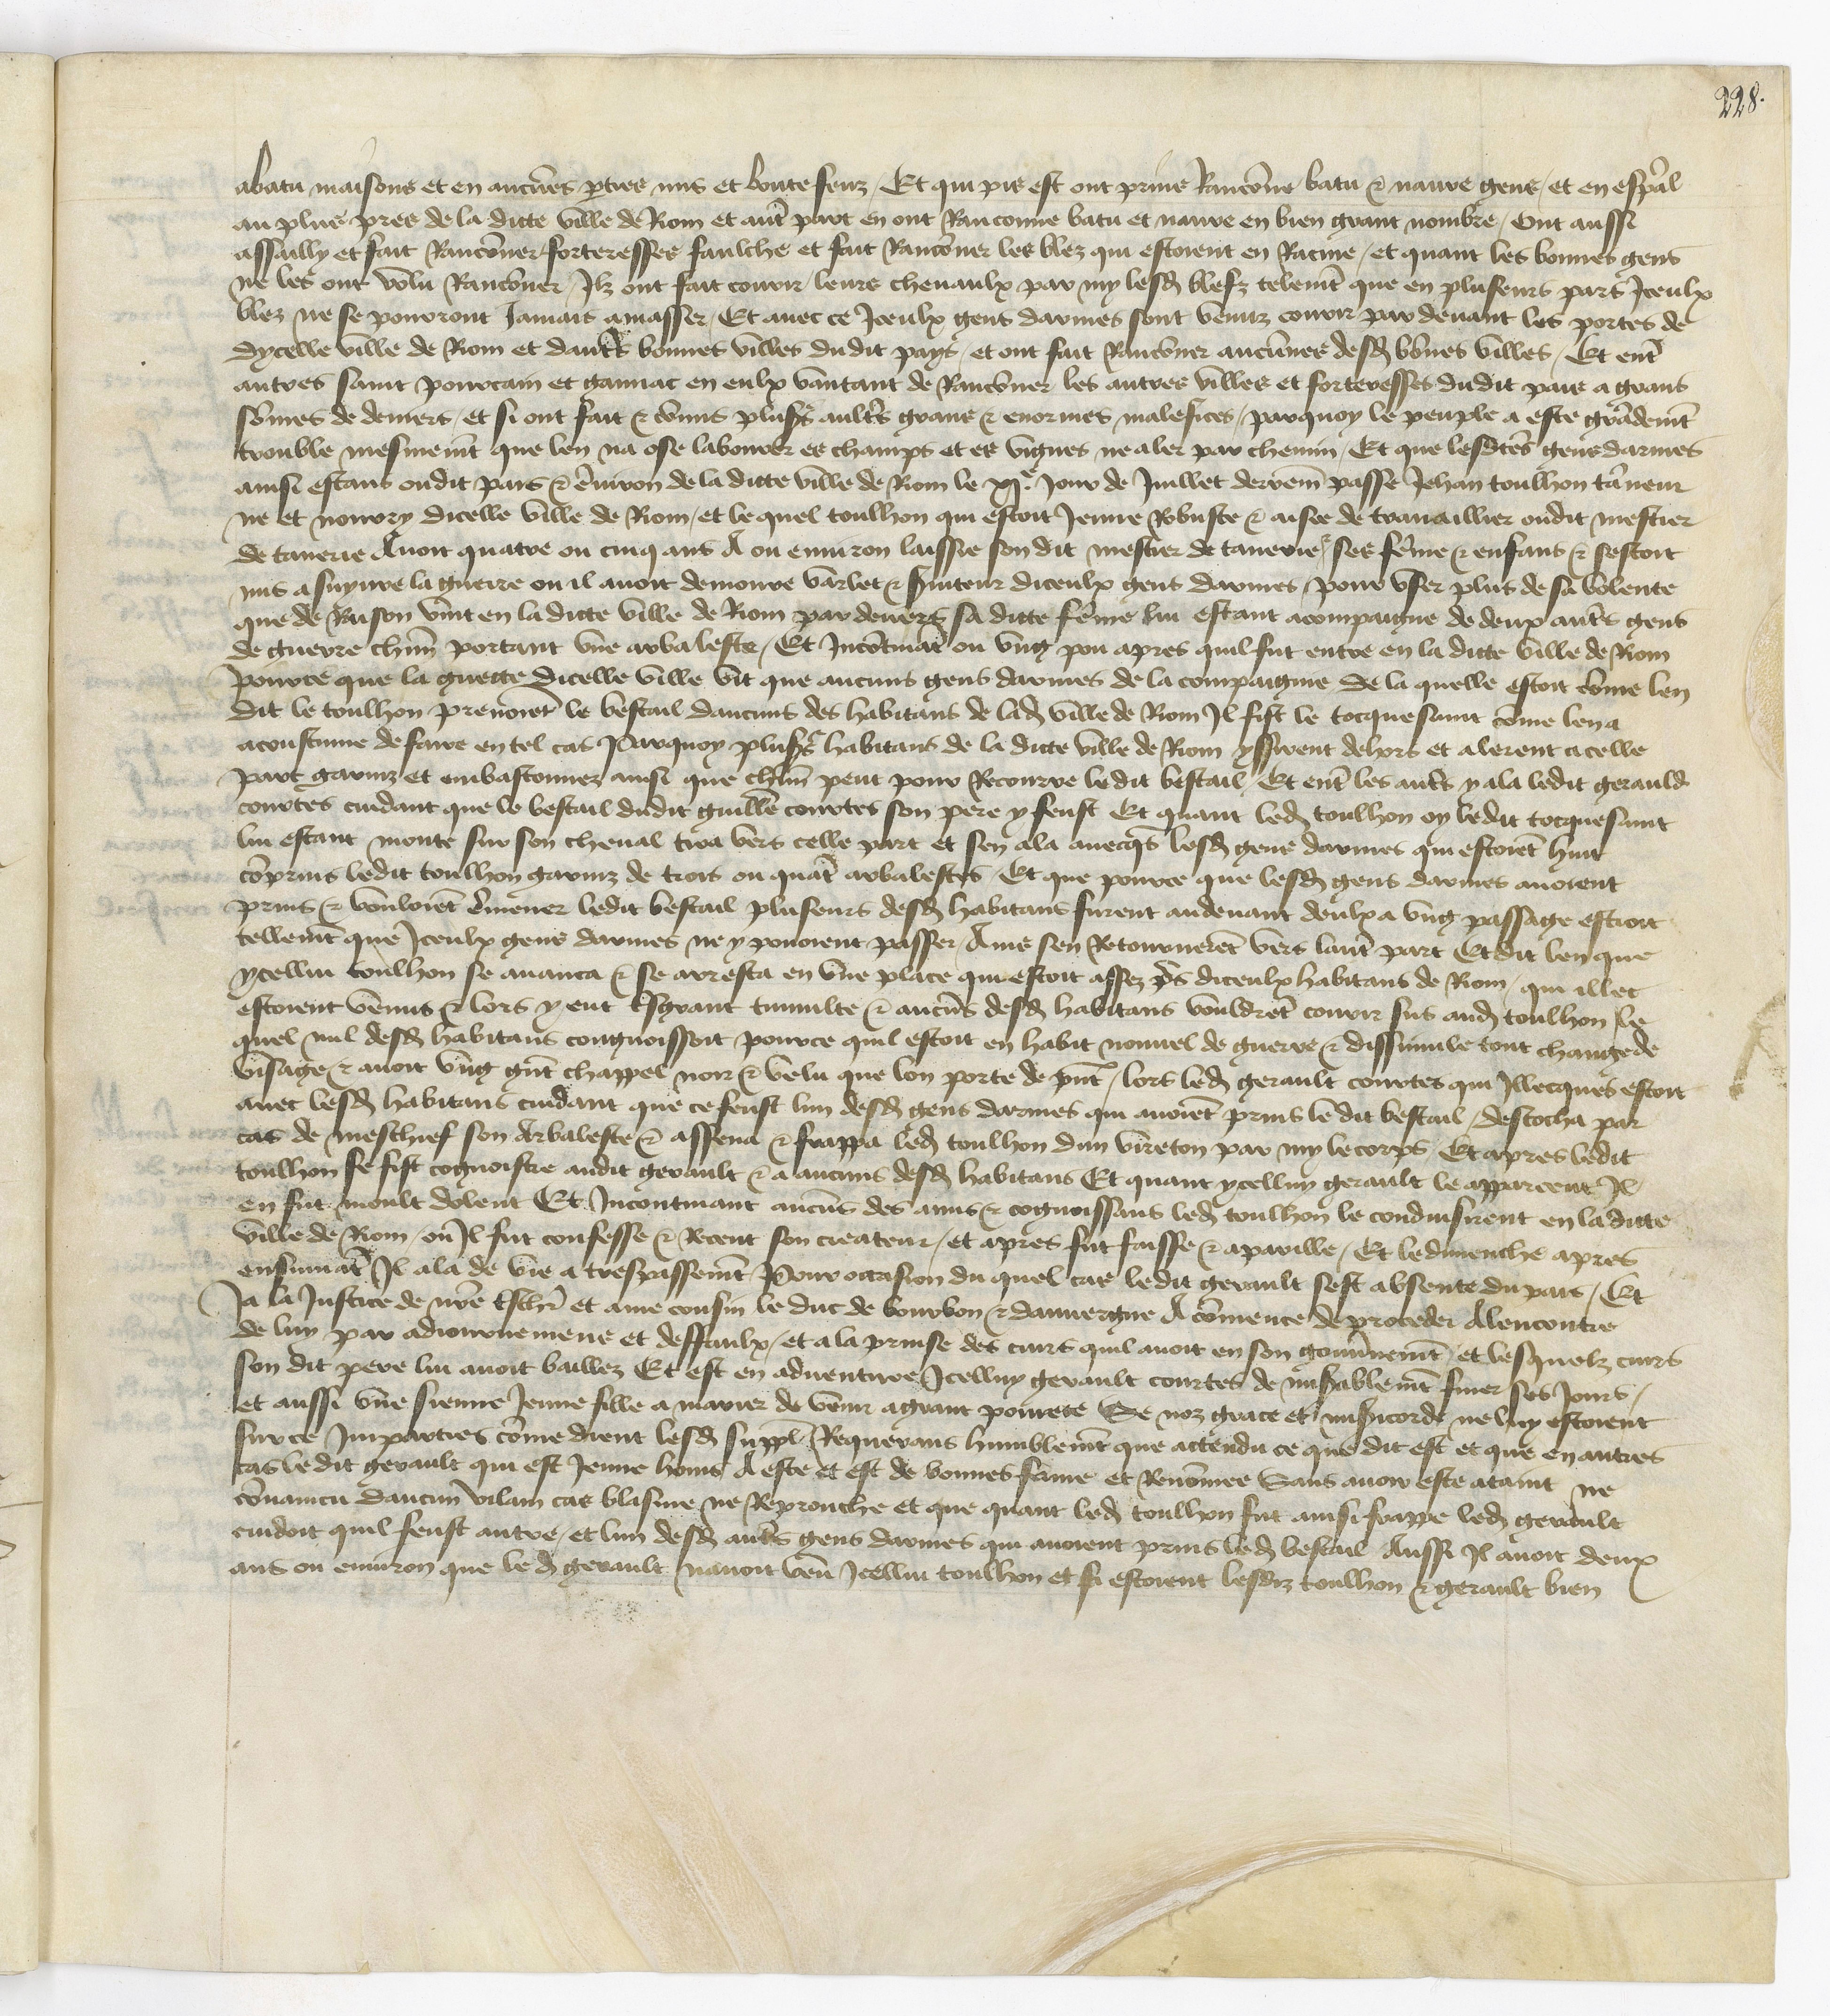 228.
abatu maisons et en aucũes p̃ties mis et boute feuz / Et qui pis est ont prins Rançõne batu & navre gens / et en esp̃al
au plus pres de la dicte ville de Riom et aut̃ part en ont Ranconne batu et navre en bien grant nombre / Ont aussi
assailly et fait Rancõner forteresses faulche et fait Rancõner les blez qui estoient en Racine / et quant les bonnes gens
ne les ont volu Rancõner / Ilz ont fait courir leurs chevaulx par my lesd̃ blefz telem̃t que en pluseurs pars Iceulx
blez ne se pourront Iamais amasser / Et avec ce Iceulx gens darmes sont venuz courir par devant les portes de
dycelle ville de Riom et daut̃s bonnes villes dudit pays / et ont fait Rancõner aucunes desd̃ bõnes villes / Et ent̃
autres saint pourcain et gannac en eulx vantant de Rancõner les autres villes et forteresses dudit pais a grans
sõmes de deniers / et si ont fait & cõmis plus̃s ault̃s grans & enormes malefices / parquoy le peuple a este grãdem̃t
trouble mesmem̃t que len na ose labourer es champs et es vignes ne aler par chemin / Et que lesdictes gens darmes
ainsi estans oudit pais & ẽviron de la dicte ville de Riom le xj.e Iour de Iuillet derrem̃ passe Iehan toulhon tãneur
ne et nourry dicelle ville de Riom / et le quel toulhon qui estoit Ieune Robuste & aisee de travaillier oudit mestier
de tanerie Avoit quatre ou cinq ans A ou environ laissie son dit mestier de tanerie & ses fẽme & enfans & sestoit
mis a suyure la guerre ou il avoit demoure varlet & s̃viteur diceulx gens darmes / pour user plus de sa volente
que de Raison vint en la dicte ville de Riom par devers sa dicte fẽme lui estant acompaigne de deux aut̃s gens
de guerre chũn portant vne arbaleste / Et Incõtinãt ou vng pou apres quil fut entre en la dicte ville de Riom
pource que la guette dicelle ville vit que aucuns gens darmes de la compaignie de la quelle estoit cõme len
dit le toulhon prenoiẽt le bestail daucuns des habitans de lad̃ ville de Riom Il fist le tocquesaint cõme len a
acoustume de faire en tel cas Parquoy plus̃s habitans de la dicte ville de Riom yssirent dehors et alerent a celle
part garniz et embastonnez ainsi que chũn peut pour Recourre ledit bestail / Et ent̃ les aut̃s y ala ledit gerauld
courtes cuidant que le bestail dudit guill̃e courtes son pere y feust Et quant led̃ toulhon oy ledit tocquesaint
lui estant monte sur son cheval tira vers celle part et sen ala avecq̃s lesd̃ gens darmes qui estoiẽt huit
cõprins ledit toulhon garniz de trois ou quat̃ arbalestes / Et que pource que lesd̃ gens darmes avoient
prins & vouloiẽt ẽmener ledit bestail pluseurs desd̃ habitans furent audevant deulx a vng passage estroit
tellem̃t que Iceulx gens darmes ne y povoient passer / Ains sen Retournerẽt vers laut̃ part Et dit len que
ycellui toulhon se avanca & se arresta en vne place qui estoit assez p̃s diceulx habitans de Riom / qui illec
estoient venus & lors y eut tsgrant tumulte & aucũs desd̃ habitans vouldrẽt courir sus aud̃ toulhon / le
quel nul desd̃ habitans congnoissoit pource quil estoit en habit nouvel de guerre & dissimule tout change de
visage & avoit vng gñt chappel noir & velu que lon porte de p̃nt / lors led̃ gerault courtes qui Illecques estoit
avec lesd̃ habitans cuidant que ce feust lun desd̃ gens darmes qui avoiẽt prins le dit bestail / destocha par
cas de meschief son Arbaleste & assena & frappa led̃ toulhon dun vireton par my le corps / Et apres ledit
toulhon se fist cognoistre audit gerault & a aucuns desd̃ habitans Et quant ycelluy gerault le apparceut Il
en fut moult dolent Et Incontinant aucũs des amis & cognoissans led̃ toulhon le conduisirent en la dicte
ville de Riom / ou Il fut confesse & Receut son createur / et apres fut faisse & apareille / Et le dimenche apres
ensuivãt Il ala de vie a trespassem̃t Pour occasion du quel cas ledit gerault sest absente du pais / Et
Ia la Iustice de nr̃e tsch̃r et ame cousin le duc de bourbon & dauvergne A cõmence de proceder Alencontre
de luy par adiournemens et deffaulx / et a la prinse des cuirs quil avoit en son gouv̾nem̃t / et lesquelz cuirs
son dit pere lui avoit baillez Et est en adventure Icelluy gerault courtes de mis̾ablem̃t finer ses Iours /
et aussi vne sienne Ieune fille a marier de venir a grant povrete Se noz grace et mis̾icorde ne luy estoient
sur ce Imparties cõme dient lesd̃ suppl̃ Requerans humblem̃t que actendu ce que dit est et que en autres
cas le dit gerault qui est Ieune homs A este et est de bonnes fame et Renõmee Sans avoir este ataint ne
cõvaincu daucun vilain cas blasme ne Reprouche et que quant led̃ toulhon fut ainsi frappe led̃ gerault
cuidoit quil feust autre / et lun desd̃ aut̃s gens darmes qui avoient prins led̃ bestail Aussi Il avoit deux
ans ou environ que le d̃ gerault navoit veu Icellui toulhon et si estoient lesdiz toulhon & gerault bien